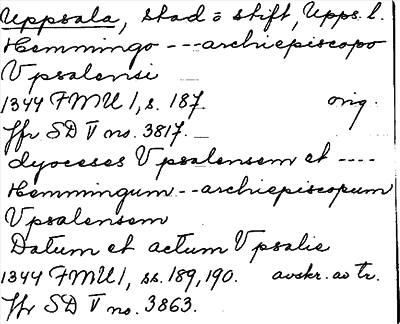 Uppsala, stad o stift, Upps. l.
Hemmingo --- archiepiscopo
Vpsalensi
1344 FMU 1, s. 187. orig.
Jfr SD V no. 3817.
dyoceses Vpsalensem et ----
Hemmingum -- archiepiscopum
Vpsalensem
Datum et actum Vpsalie
1344 FMU 1, ss. 189, 190. avskr. av tr.
Jfr SD V no. 3863.